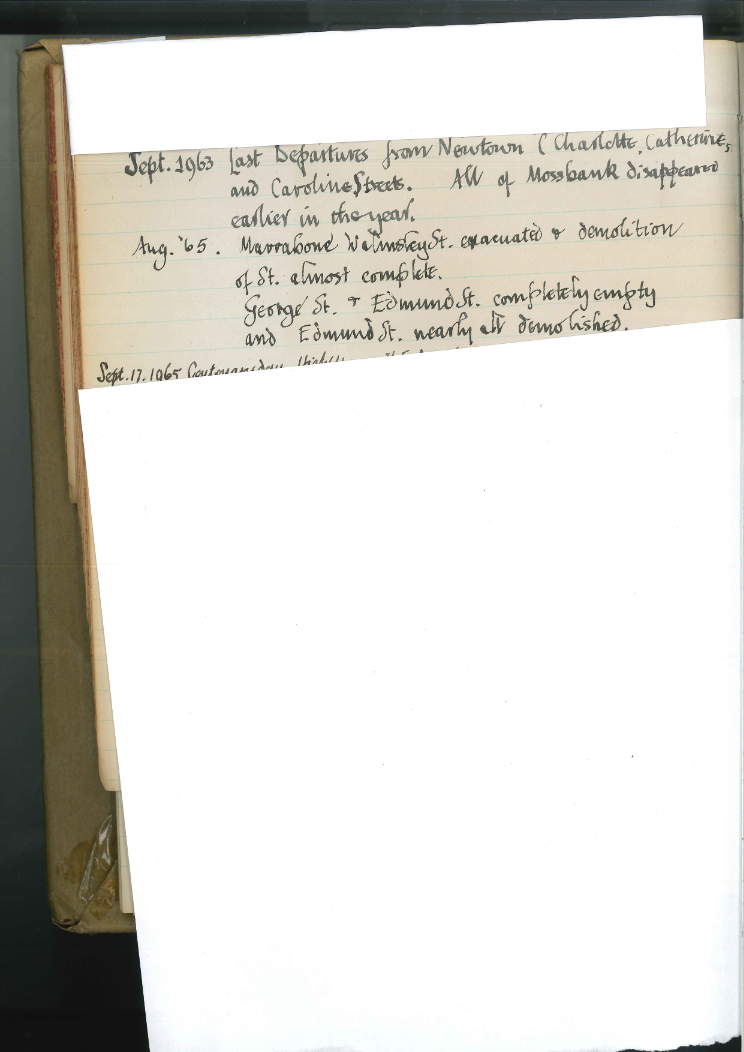 Sept. 1963 Last Departures from Newtown ( Charlotte, Catherine,
and Caroline Streets. All of Mossbank disappeared
earlier in the year.
Aug. '65. Marrabone Walmsley St. evacuated & demolition
of St. almost complete.
George St. & Edmund St. completely empty
and Edmund St. nearly all demolished.
Sept. 17. 1965